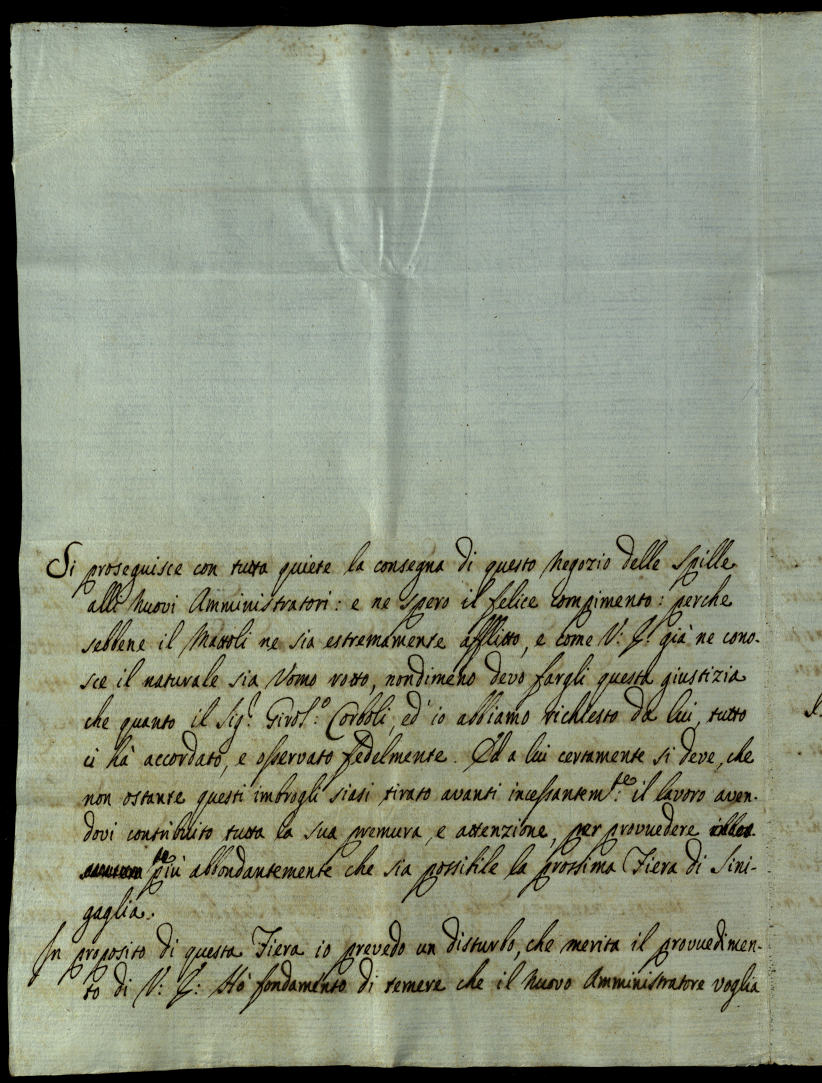 Si proseguisce con tutta quiete la consegna di questo Negozio delle Spille
alli Nuovi Amministratori: e ne spero il felice compimento: perche
sebbene il Mattoli ne sia estremamente afflitto, e come V: S: già ne cono-
sce il naturale sia Vomo rotto, nondimeno devo fargli questa giustizia
che quanto il Sig.r Girol.o: Corboli, ed' io abbiamo richiesto da lui, tutto
ci hà accordato, e osservato fedelmente. Ed a lui certamente si deve, che
non ostante questi imbrogli siasi tirato avanti incessantem.te: il lavoro aven-
dovi contribuito tutta la sua premura, e attenzione, per provuedere
più abbondantemente che sia possibile la prossima Fiera di Sini-
gaglia.
In proposito di questa Fiera io prevedo un disturbo, che merita il provuedimen-
to di V: S: Hò fondamento di temere che il Nuovo Amministratore voglia